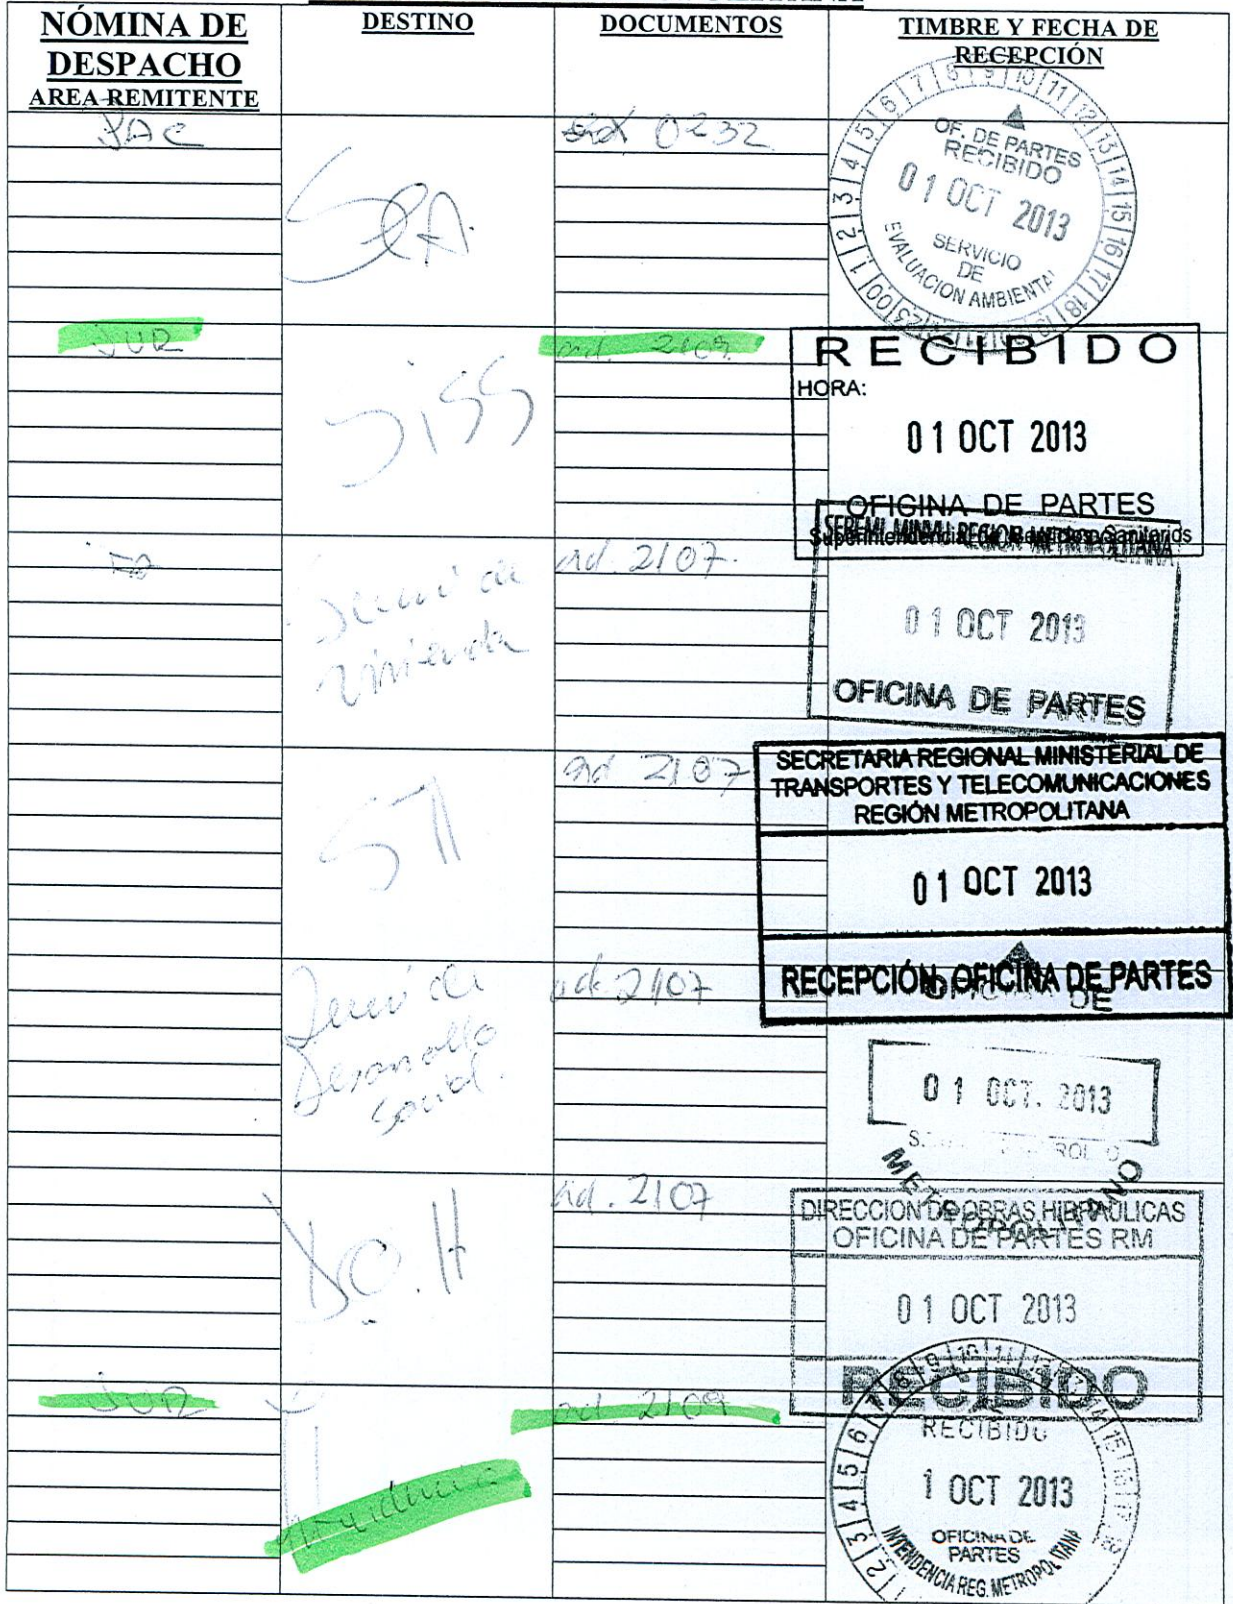 NÓMINA DE
DESPACHO
AREA REMITENTE
DESTINO
DOCUMENTOS
TIMBRE Y FECHA DE
RECEPCIÓN
0232
SEA
OF. DE PARTES
RECIBIDO
01 OCT 2013
SERVICIO
DE
EVALUACION AMBIENTAL
JUR
SISS
ord. 2109
RECIBIDO
HORA:
01 OCT 2013
OFICINA DE PARTES
Superintendencia de Servicios Sanitarios
Seremi de
Vivienda
ord. 2107
SEREMI MINVU REGION METROPOLITANA
01 OCT 2013
OFICINA DE PARTES
ord 2107
SECRETARIA REGIONAL MINISTERIAL DE
TRANSPORTES Y TELECOMUNICACIONES
REGIÓN METROPOLITANA
01 OCT 2013
RECEPCIÓN OFICINA DE PARTES
Seremi de
Desarrollo
Social.
ord. 2107
OFICINA DE
01 OCT. 2013
METROPOLITANO
D.O.H
ord. 2107
DIRECCION DE OBRAS HIDRAULICAS
OFICINA DE PARTES RM
01 OCT 2013
RECIBIDO
JUR
Intendencia
ord 2109
RECIBIDO
1 OCT 2013
OFICINA DE
PARTES
INTENDENCIA REG. METROPOLITANA